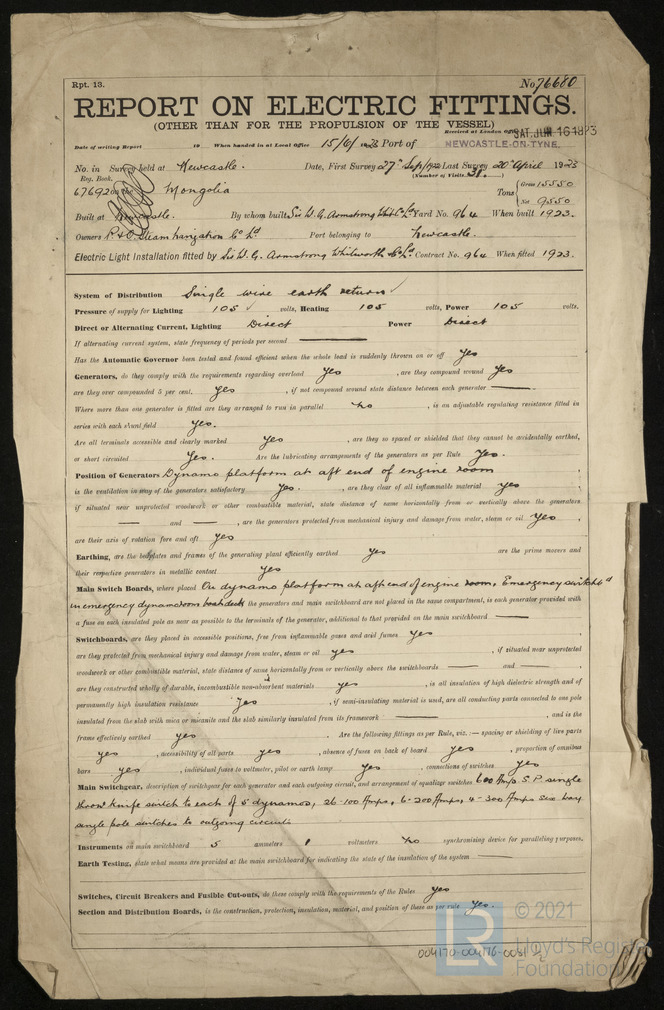 Rpt. 13.
No 76680
REPORT ON ELECTRIC FITTINGS.
(OTHER THAN FOR THE PROPULSION OF THE VESSEL)
Received at London Office SAT. JUN 16 1923
Date of writing Report 19 When handed in at Local Office 15/6/1923 Port of NEWCASTLE-ON-TYNE.
No. in Survey held at Newcastle. Date, First Survey 27th Sept/1922 Last Survey 20th April 1923
Reg. Book. (Number of Visits 31.)
67692 on the Mongolia Tons { Gross 15550
Net 9550
Built at Newcastle. By whom built Sir W. G. Armstrong Whit. & Co. Ld Yard No. 964 When built 1923.
Owners P & O Steam Navigation Co Ld Port belonging to Newcastle.
Electric Light Installation fitted by Sir W. G. Armstrong Whitworth & Co. Ld Contract No. 964 When fitted 1923.
System of Distribution Single wire earth return
Pressure of supply for Lighting 105 volts, Heating 105 volts, Power 105 volts.
Direct or Alternating Current, Lighting Direct Power Direct
If alternating current system, state frequency of periods per second —
Has the Automatic Governor been tested and found efficient when the whole load is suddenly thrown on or off Yes
Generators, do they comply with the requirements regarding overload Yes , are they compound wound Yes
are they over compounded 5 per cent. Yes , if not compound wound state distance between each generator — .
Where more than one generator is fitted are they arranged to run in parallel No , is an adjustable regulating resistance fitted in
series with each shunt field Yes.
Are all terminals accessible and clearly marked Yes , are they so spaced or shielded that they cannot be accidentally earthed,
or short circuited Yes. Are the lubricating arrangements of the generators as per Rule Yes.
Position of Generators Dynamo platform at aft end of engine room ,
is the ventilation in way of the generators satisfactory Yes. , are they clear of all inflammable material Yes ,
if situated near unprotected woodwork or other combustible material, state distance of same horizontally from or vertically above the generators
— and — , are the generators protected from mechanical injury and damage from water, steam or oil Yes ,
are their axis of rotation fore and aft Yes
Earthing, are the bedplates and frames of the generating plant efficiently earthed Yes are the prime movers and
their respective generators in metallic contact Yes
Main Switch Boards, where placed On dynamo platform at aft end of engine room. Emergency switchbd
in emergency dynamo room boat deck the generators and main switchboard are not placed in the same compartment, is each generator provided with
a fuse on each insulated pole as near as possible to the terminals of the generator, additional to that provided on the main switchboard —
Switchboards, are they placed in accessible positions, free from inflammable gases and acid fumes Yes ,
are they protected from mechanical injury and damage from water, steam or oil Yes , if situated near unprotected
woodwork or other combustible material, state distance of same horizontally from or vertically above the switchboards — and — ,
are they constructed wholly of durable, incombustible non-absorbent materials Yes , is all insulation of high dielectric strength and of
permanently high insulation resistance Yes , if semi-insulating material is used, are all conducting parts connected to one pole
insulated from the slab with mica or micanite and the slab similarly insulated from its framework — , and is the
frame effectively earthed Yes . Are the following fittings as per Rule, viz.:— spacing or shielding of live parts
Yes , accessibility of all parts Yes , absence of fuses on back of board Yes , proportion of omnibus
bars Yes , individual fuses to voltmeter, pilot or earth lamp Yes , connections of switches Yes
Main Switchgear, description of switchgear for each generator and each outgoing circuit, and arrangement of equalizer switches 600 Amp S.P. single
throw knife switch to each of 5 dynamos, 26-100 Amps, 6-200 Amps, 4-300 Amps two way
single pole switches to outgoing circuits
Instruments on main switchboard 5 ammeters 1 voltmeters No synchronising device for paralleling purposes.
Earth Testing, state what means are provided at the main switchboard for indicating the state of the insulation of the system —
Switches, Circuit Breakers and Fusible Cut-outs, do these comply with the requirements of the Rules Yes
Section and Distribution Boards, is the construction, protection, insulation, material, and position of these as per rule Yes.
LR © 2021
Lloyd's Register
Foundation